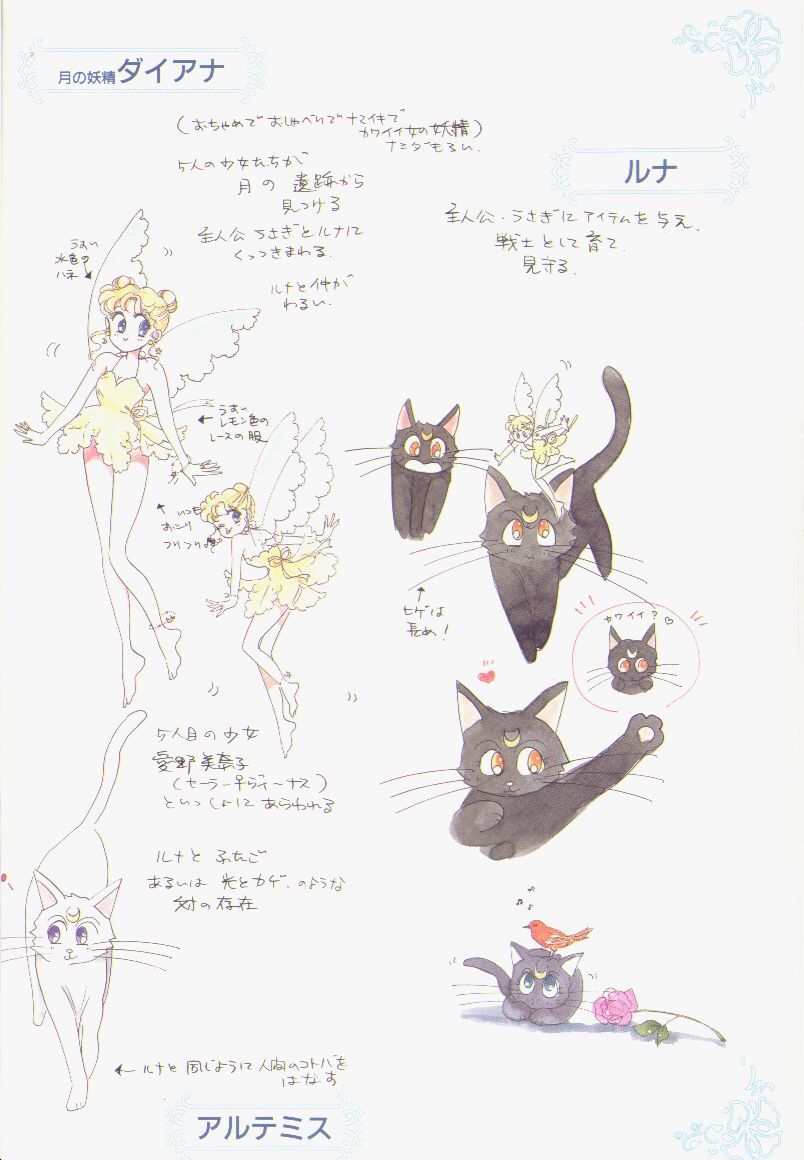 月の妖精ダイアナ
(おちゃめで おしゃべりで ナマイキで
カワイイ女の妖精)
ナミダもろい.
5人の少女たちが
月の 遺跡から
見つける
主人公 うさぎとルナに
くっつきまわる.
ルナと仲が
わるい.
うすい
水色の
ハネ
← うすい
レモン色の
レースの服
いつも
おこり
ルナ
主人公・うさぎにアイテムを与え.
戦士として育て.
見守る.
↑
ヒゲは
長め!
カワイイ?♡
5人目の少女
愛野美奈子
(セーラーヴィーナス)
といっしょに あらわれる
ルナと ふたご
あるいは 光とカゲ.のような
対の存在
← ルナと 同じように 人間のコトバを
はなす.
アルテミス